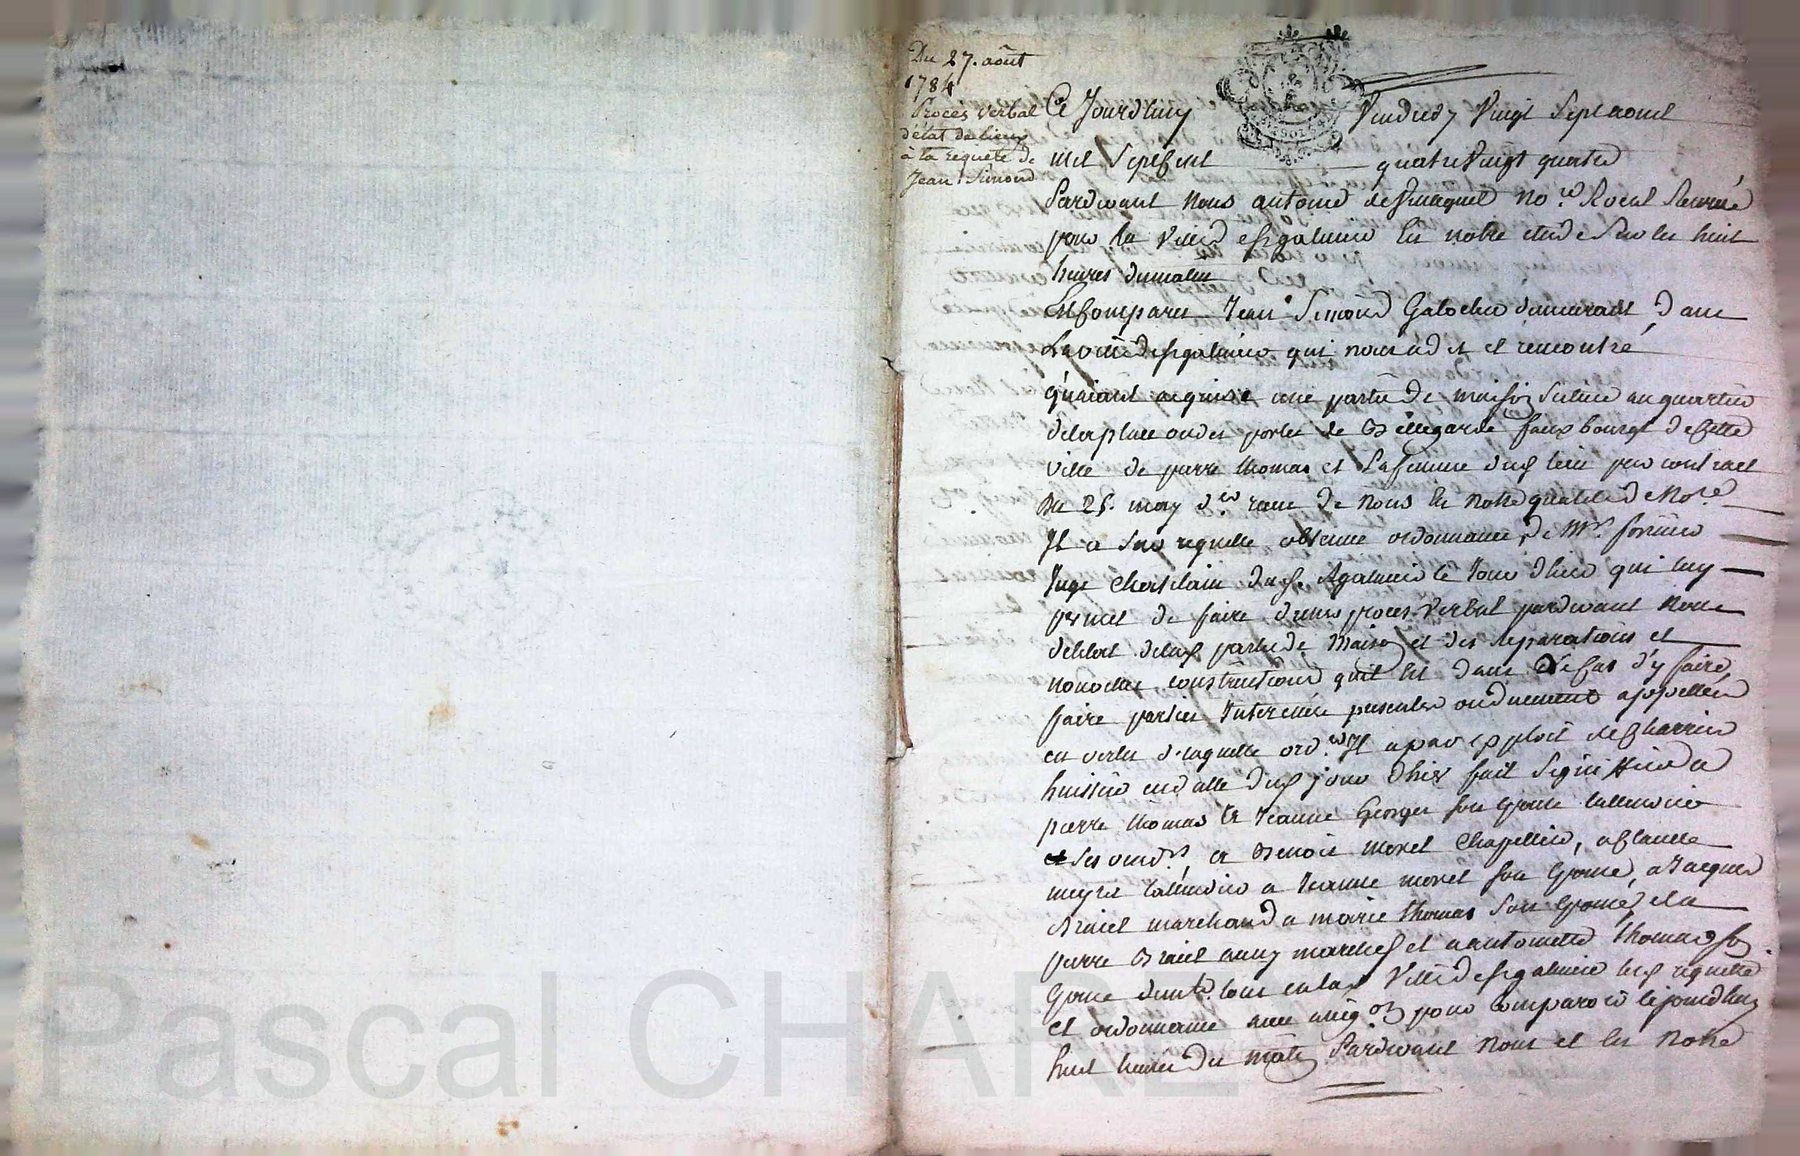 Du 27. août
1784
Procès verbal
d'état de lieux
à la requete de
Jean Simond
Ce Jourdhuy Vendredy Vingt Sept aoust
mil Sept Cent quatre Vingt quatre
Pardevant Nous antoine No.re Royal Reservé
pour la Ville de st galmier En notre etude Sur les huit
heures du matin
Est Comparu Jean Simond Galochier demeurant dans
La ville de st galmier qui nous a dit et remontré
qu'aiant acquis une partie de maison Scituée au quartier
de la place ou des portes de Bellegarde faux bourgt de Cette
ville de pierre thomas et Sa femme dud lieu par contract
du 25. may d.er recu de Nous En Notre qualité de No.re
Il a Sur requette obtenue ordonnance de Mr.
Juge Chatelain dud. St galmier le Jour d'hier qui luy
permet de faire dresser proces Verbal pardevant Nous
de letat de lad partie de Maison et des reparations et
nouvelles constructions quil Est dans le Cas d'y faire,
faire parties Interessées presentes ou duement appellées
en vertu de laquelle ord.ce Il a par exploit de Charrier
huissier en date dud jour d'hier fait Signiffier a
pierre thomas Et Jeanne Georges Son Epouse
et Ses vend.rs a Benoit morel Chapellier, a Claude
meyet a Jeanne morel Son Epouse, a Jacques
marchand a marie thomas Son Epouse, et a
pierre aussy marchd et a antoinette thomas Son
Epouse demt. tous en lad Ville de st galmier lesd requette
et ordonnance avec assig.on pour Comparoir Cejourdhuy
huit heures du matin Pardevant Nous et En Notre
Pascal